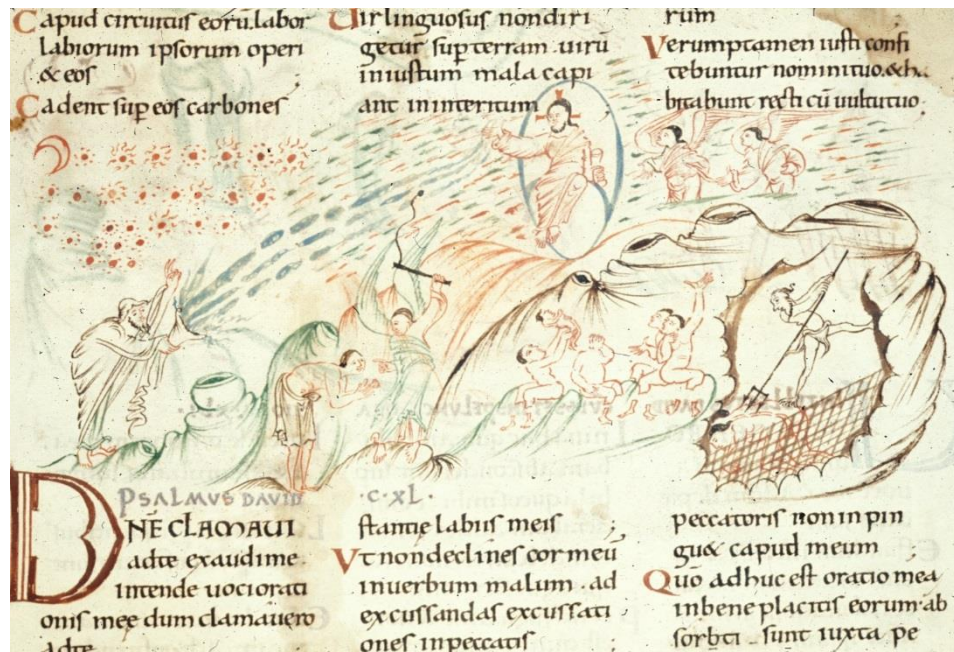 Capud circuitus eorū. labor
labiorum ipsorum operi
& eos
Cadent sup eos carbones
Uir linguosus non diri
getur sup terram. uirū
iniustum mala capi
ant in interitum
rum
Verumptamen iusti confi
tebuntur nomini tuo. & ha
bitabunt recti cū uultu tuo.
PSALMUS DAVID C·XL·
DNE CLAMAUI
ad te exaudi me.
intende uoci orati
onis meę dum clamauero
ad te
stantię labiis meis
Vt non declines cor meū
in uerbum malum. ad
excussandas excussati
ones in peccatis
peccatoris non in pin
gu& capud meum
Quō adhuc est oratio mea
in bene placitis eorum. ab
sorbti. sunt iuxta pe